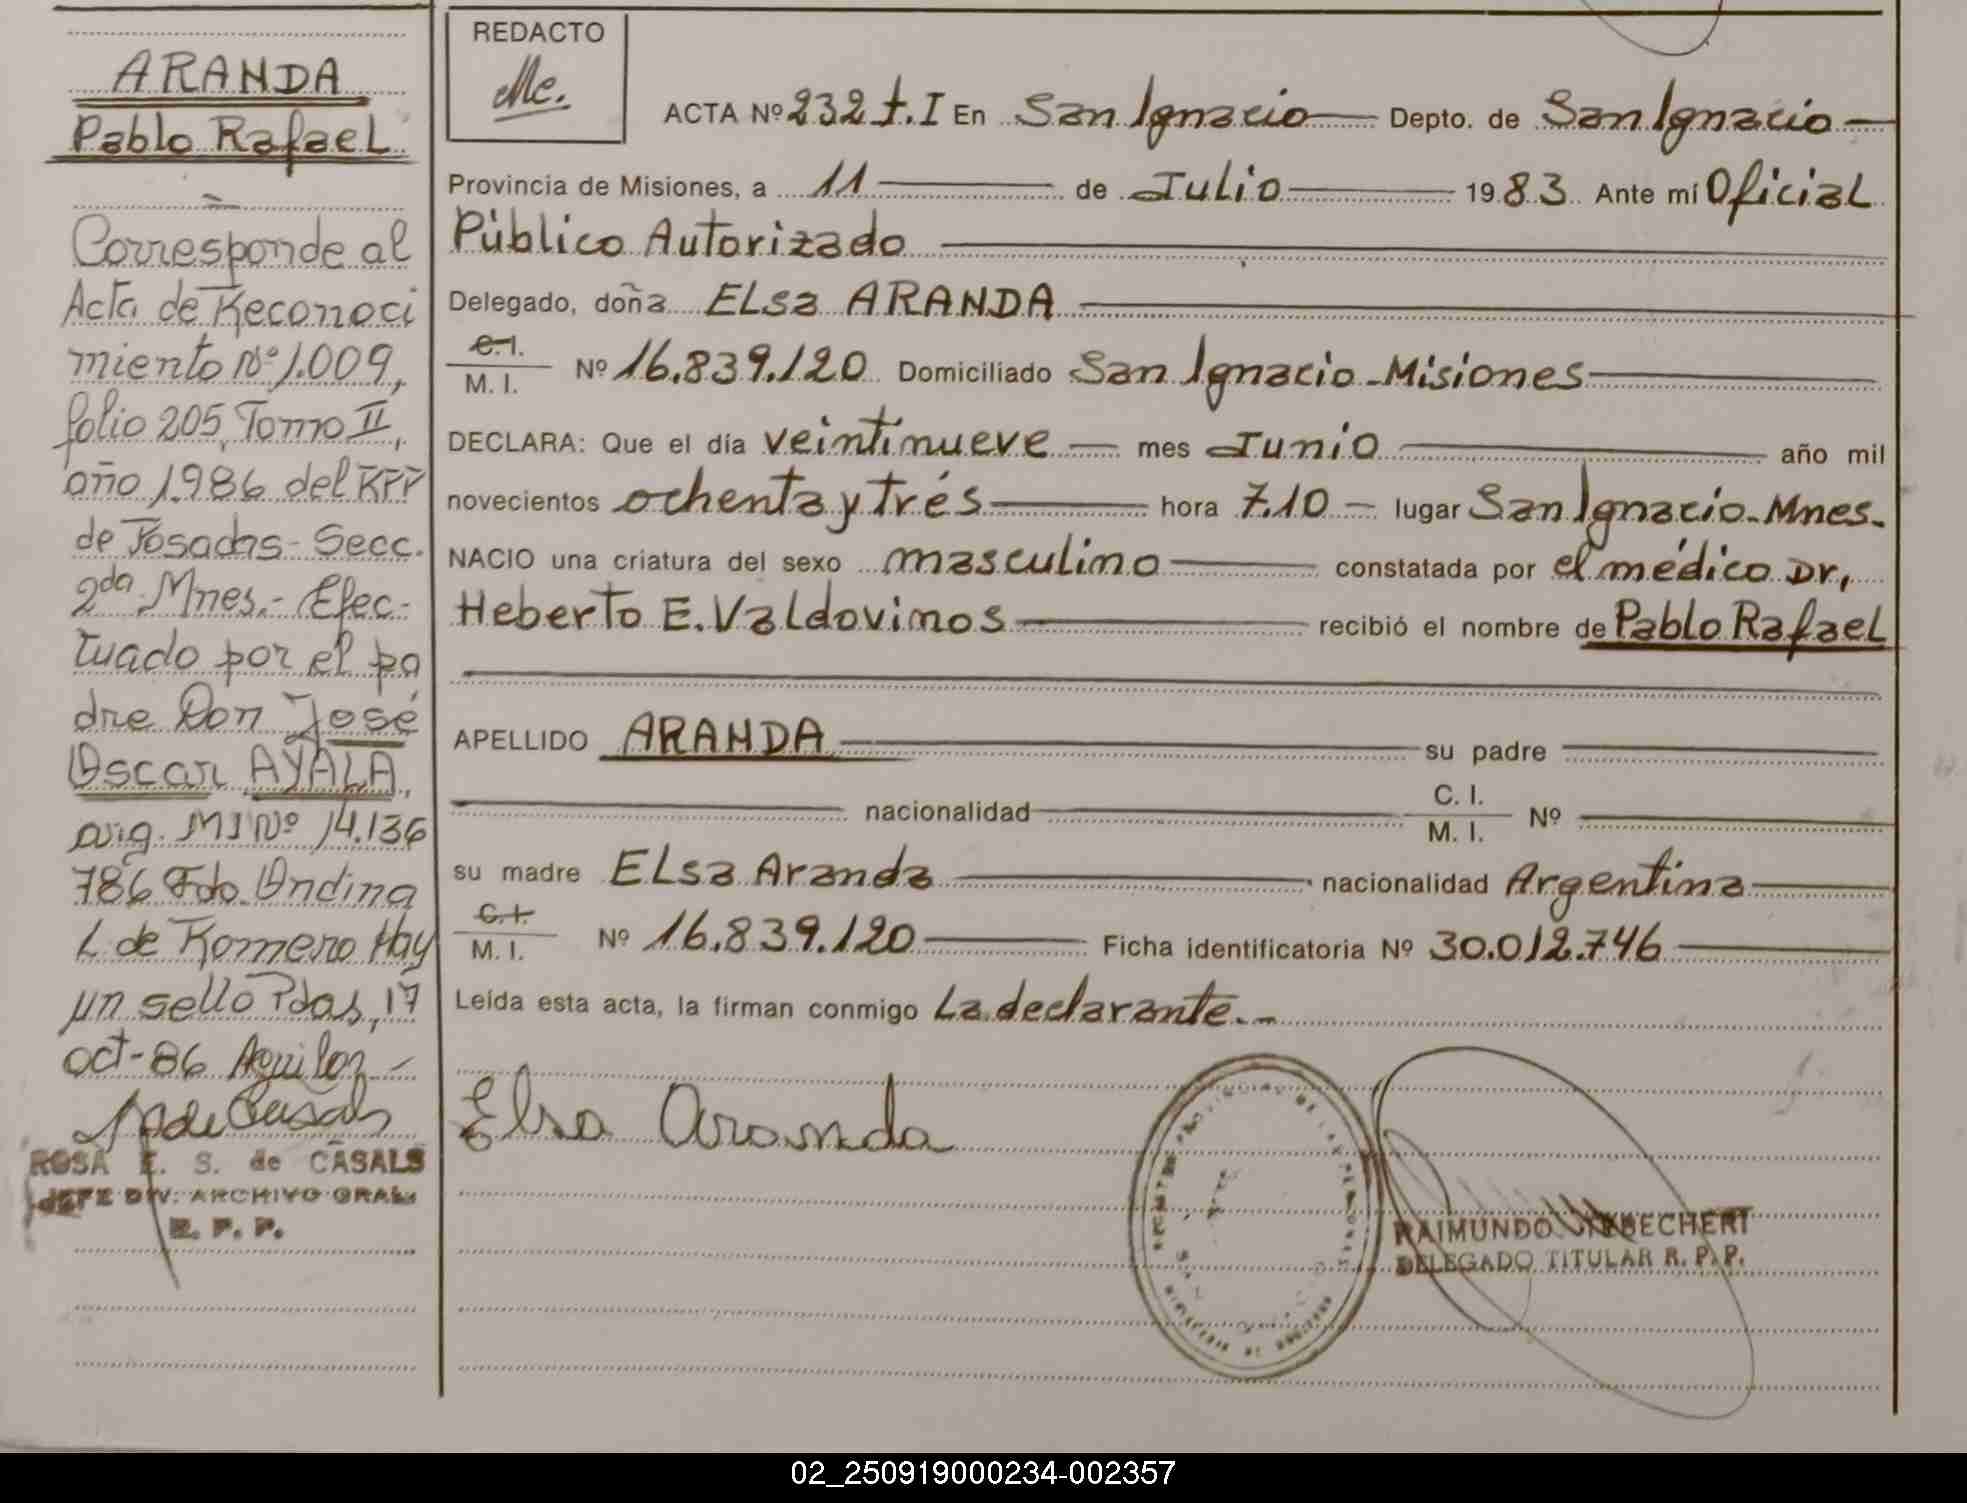 ARANDA
Pablo Rafael
Corresponde al
Acta de Reconoci
miento Nº 1.009,
folio 205, Tomo II,
año 1.986 del RPP
de Posadas - Secc.
2da. Mnes.- Efec-
tuado por el pa
dre Don José
Oscar AYALA,
arg. MI Nº 14.136
786 Fdo. Ondina
L. de Romero Hay
un sello Pdas, 17
oct-86 Aguilar -
ROSA E. S. de CASALS
JEFE DIV. ARCHIVO GRAL.
R. P. P.
REDACTO
Mc.
ACTA Nº 232 t. I En San Ignacio Depto. de San Ignacio
Provincia de Misiones, a 11 de Julio 1983 Ante mí Oficial
Público Autorizado
Delegado, doña ELsa ARANDA
C.I.
M. I. Nº 16.839.120 Domiciliado San Ignacio - Misiones
DECLARA: Que el día veintinueve mes Junio año mil
novecientos ochenta y trés hora 7.10 lugar San Ignacio - Mnes.
NACIO una criatura del sexo masculino constatada por el médico Dr,
Heberto E. Valdovinos recibió el nombre de Pablo Rafael
APELLIDO ARANDA su padre
nacionalidad C. I.
M. I. Nº
su madre ELsa Aranda nacionalidad Argentina
C.I.
M. I. Nº 16.839.120 Ficha identificatoria Nº 30.012.746
Leída esta acta, la firman conmigo La declarante.-
Elsa Aranda
RAIMUNDO
DELEGADO TITULAR R. P. P.
02_250919000234-002357